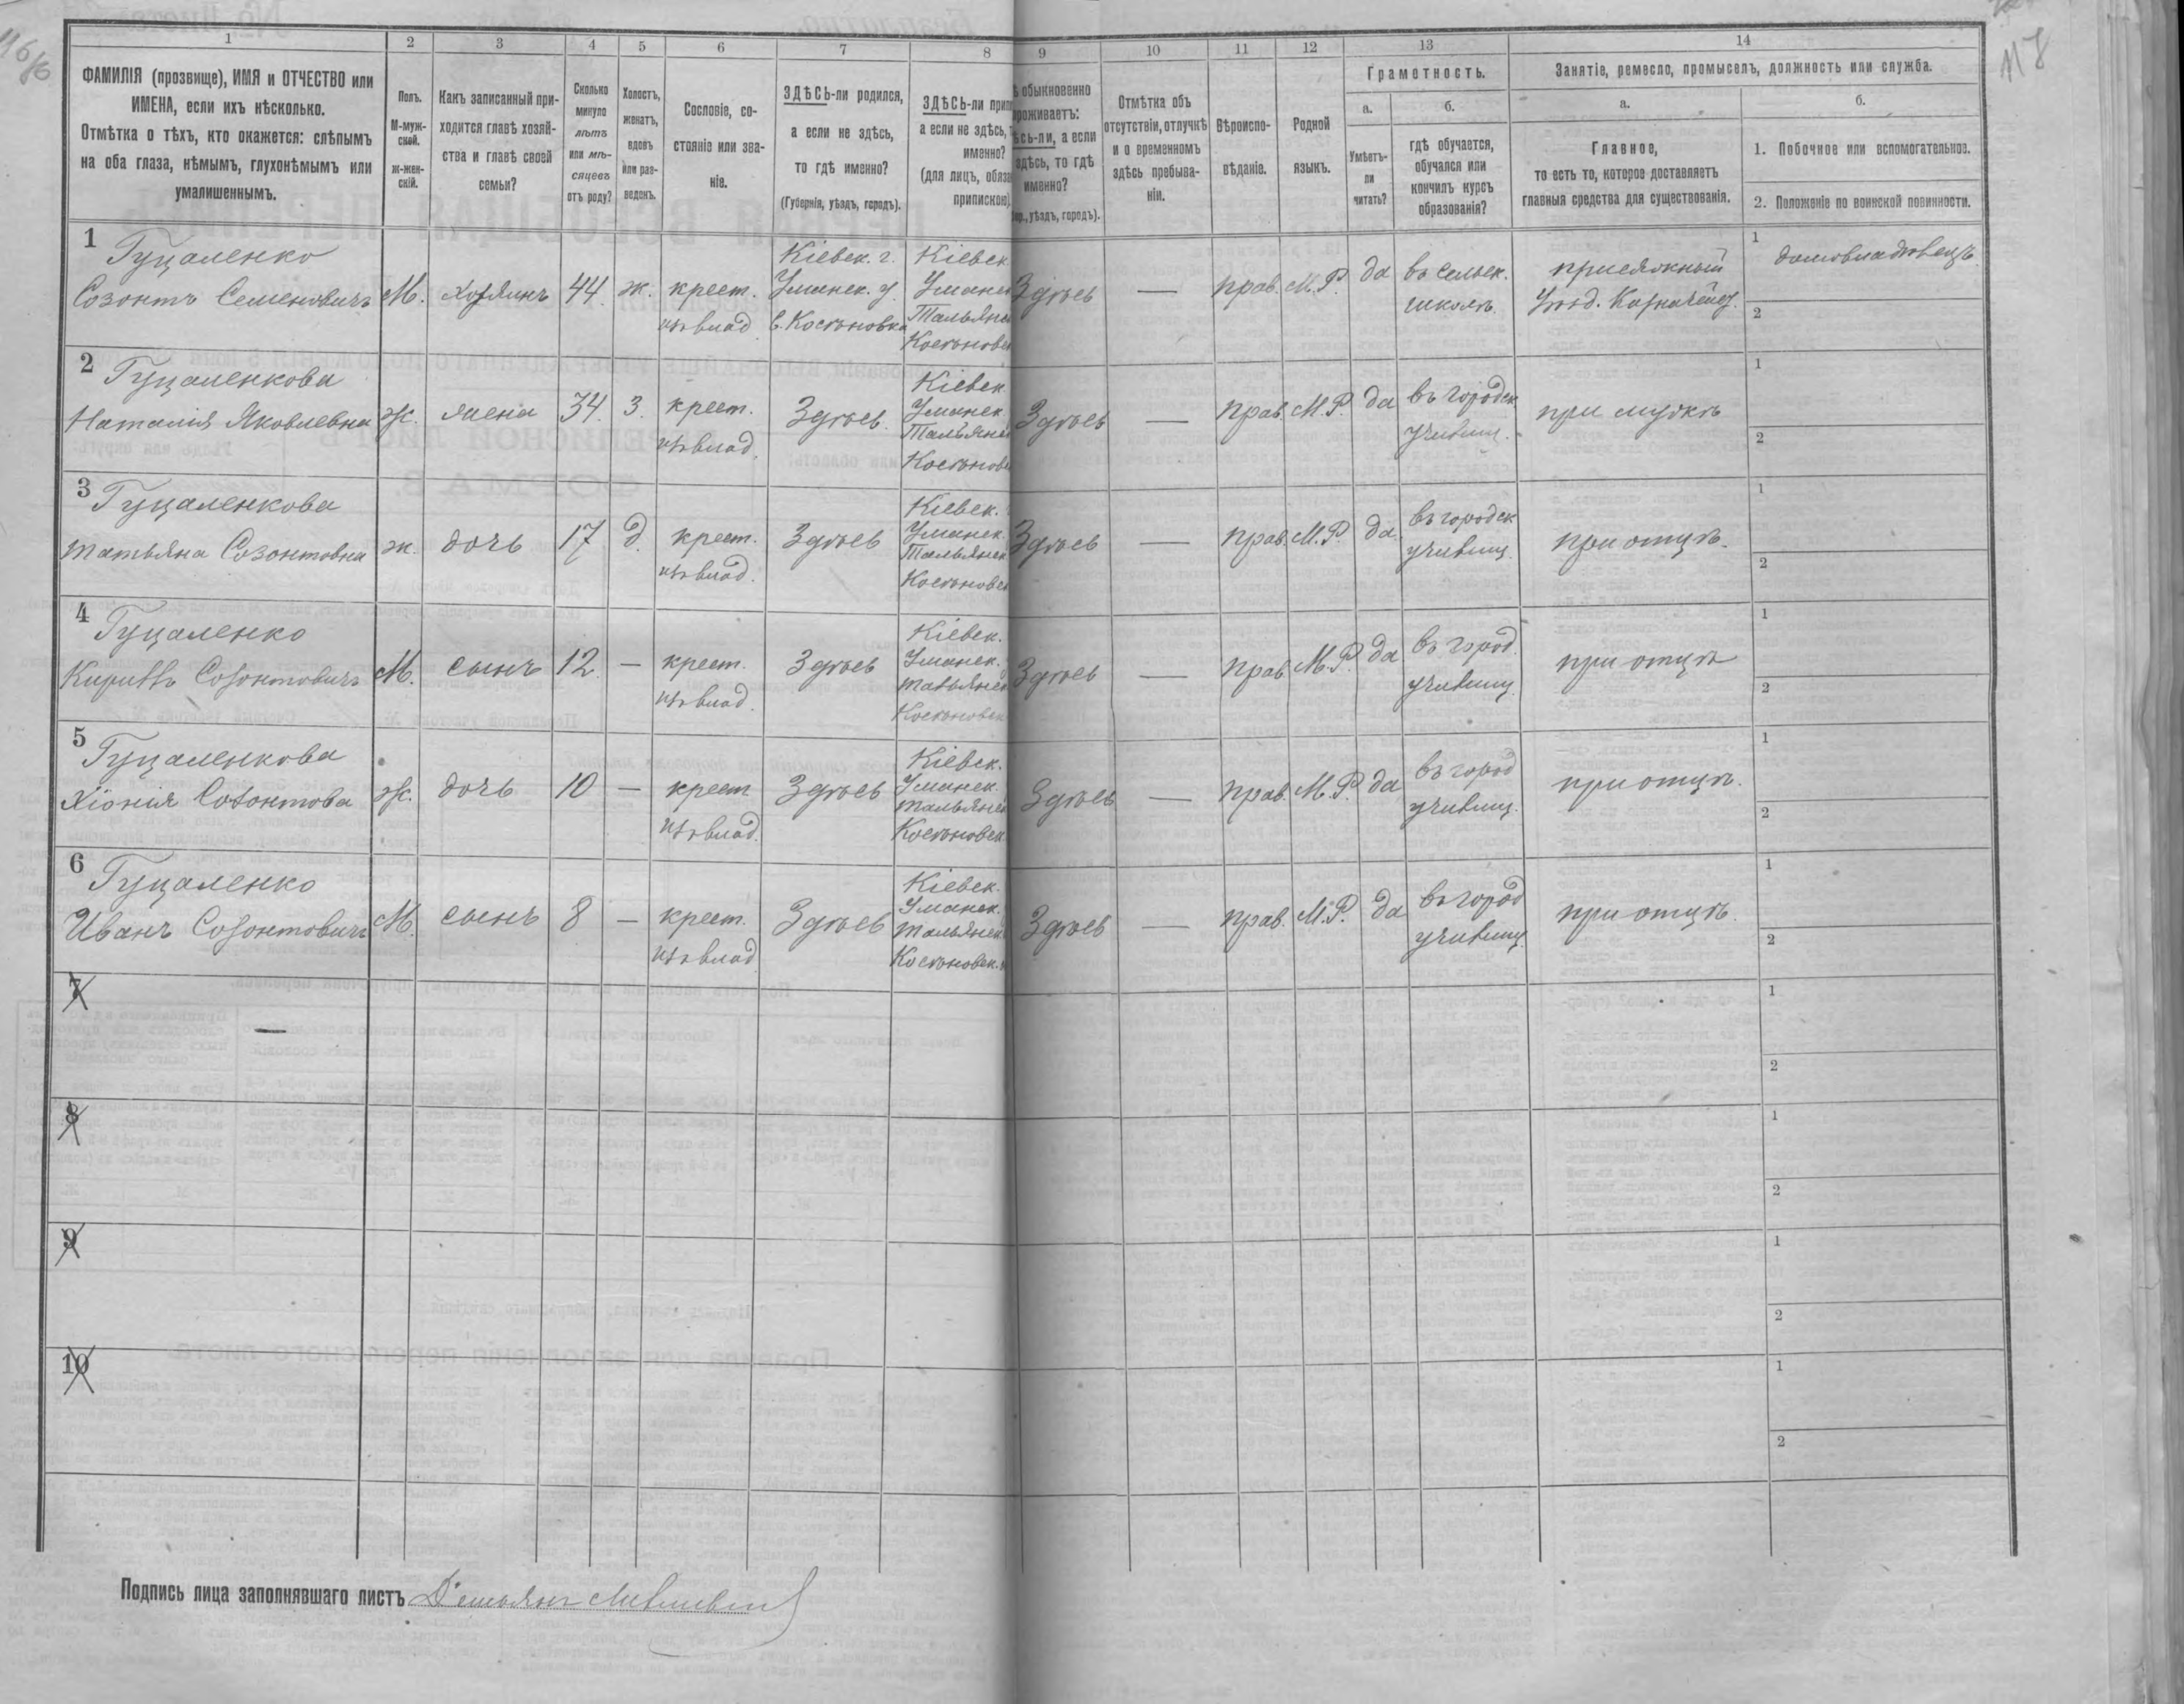 116
118
1 2 3 4 5 6 7 8 9 10 11 12 13 14
ФАМИЛІЯ (прозвище), ИМЯ и ОТЧЕСТВО или
ИМЕНА, если ихъ нѣсколько.
Отмѣтка о тѣхъ, кто окажется: слѣпымъ
на оба глаза, нѣмымъ, глухонѣмымъ или
умалишеннымъ.
Полъ.
М-муж-
ской.
ж-жен-
скій.
Какъ записанный при-
ходится главѣ хозяй-
ства и главѣ своей
семьи?
Сколько
минуло
лѣтъ
или мѣ-
сяцевъ
отъ роду?
Холостъ,
женатъ,
вдовъ
или раз-
веденъ.
Сословіе, со-
стояніе или зва-
ніе.
ЗДѢСЬ-ли родился,
а если не здѣсь,
то гдѣ именно?
(Губернія, уѣздъ, городъ).
ЗДѢСЬ-ли прип
а если не здѣсь, т
именно?
(для лицъ, обяза
припискою)
ѣ обыкновенно
роживаетъ:
ѣсь-ли, а если
здѣсь, то гдѣ
именно?
ер., уѣздъ, городъ).
Отмѣтка объ
отсутствіи, отлучкѣ
и о временномъ
здѣсь пребыва-
ніи.
Вѣроиспо-
вѣданіе.
Родной
языкъ.
Грамотность.
а.
Умѣетъ-
ли
читать?
б.
гдѣ обучается,
обучался или
кончилъ курсъ
образованія?
Занятіе, ремесло, промыселъ, должность или служба.
а.
Главное,
то есть то, которое доставляетъ
главныя средства для существованія.
б.
1. Побочное или вспомогательное.
2. Положеніе по воинской повинности.
1
Гуцаленко
Созонтъ Семеновичъ
М.
хозяинъ
44
ж.
крест.
изъ влад
Кіевск. г.
Уманск. у.
с. Косѣновка
Кіевск
Уманск
Тальянс
Косѣновск
Здѣсь
—
прав.
М.Р.
да
въ сельск.
школѣ
присяжный
Уѣзд. Казначейс.
1 домовладѣлецъ
2
2
Гуцаленкова
Наталія Яковлевна
Ж.
жена
34
З.
крест.
изъ влад.
Здѣсь.
Кіевск
Уманск.
Тальянск
Косѣновс
Здѣсь
—
прав.
М.Р.
да
въ городск.
училищ.
при мужѣ
1
2
3
Гуцаленкова
Татьяна Созонтовна
ж.
дочь
17
д.
крест.
изъ влад.
Здѣсь
Кіевск.
Уманск.
Тальянск
Косѣновск
Здѣсь
—
прав.
М.Р.
да.
въ городск
училищ.
при отцѣ.
1
2
4
Гуцаленко
Кириллъ Созонтовичъ
М.
сынъ
12
—
крест.
изъ влад.
Здѣсь
Кіевск.
Уманск.
Тальянск
Косѣновск
Здѣсь
—
прав.
М.Р.
да
въ город.
училищ.
при отцѣ
1
2
5
Гуцаленкова
Хіонія Созонтова
Ж.
дочь
10
—
крест
изъ влад.
Здѣсь
Кіевск.
Уманск.
Тальянск
Косѣновск.
Здѣсь
—
прав.
М.Р.
да
въ город
училищ.
при отцѣ.
1
2
6
Гуцаленко
Иванъ Созонтовичъ
М.
сынъ
8
—
крест.
изъ влад
Здѣсь
Кіевск.
Уманск.
Тальянск
Косѣновск.
Здѣсь
—
прав.
М.Р.
да
въ город
училищ.
при отцѣ.
1
2
7
—
1
2
8
1
2
9
1
2
10
1
2
Подпись лица заполнявшаго листъ Демьянъ